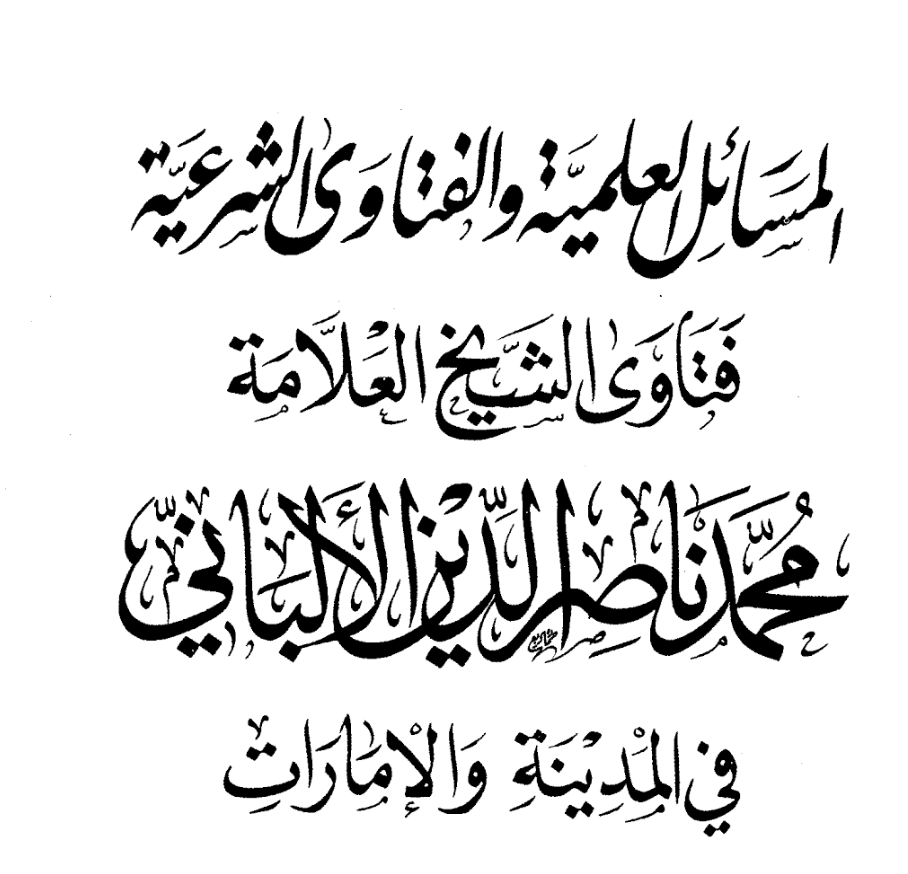 المسَائِل العلميَّة والفتاوَى الشرعيَّة
فَتَاوَى الشَّيخ العَلَّامَة
مُحمَّد نَاصِر الدِّين الألبَاني
في المَدِينَةِ وَالإمَارَاتِ